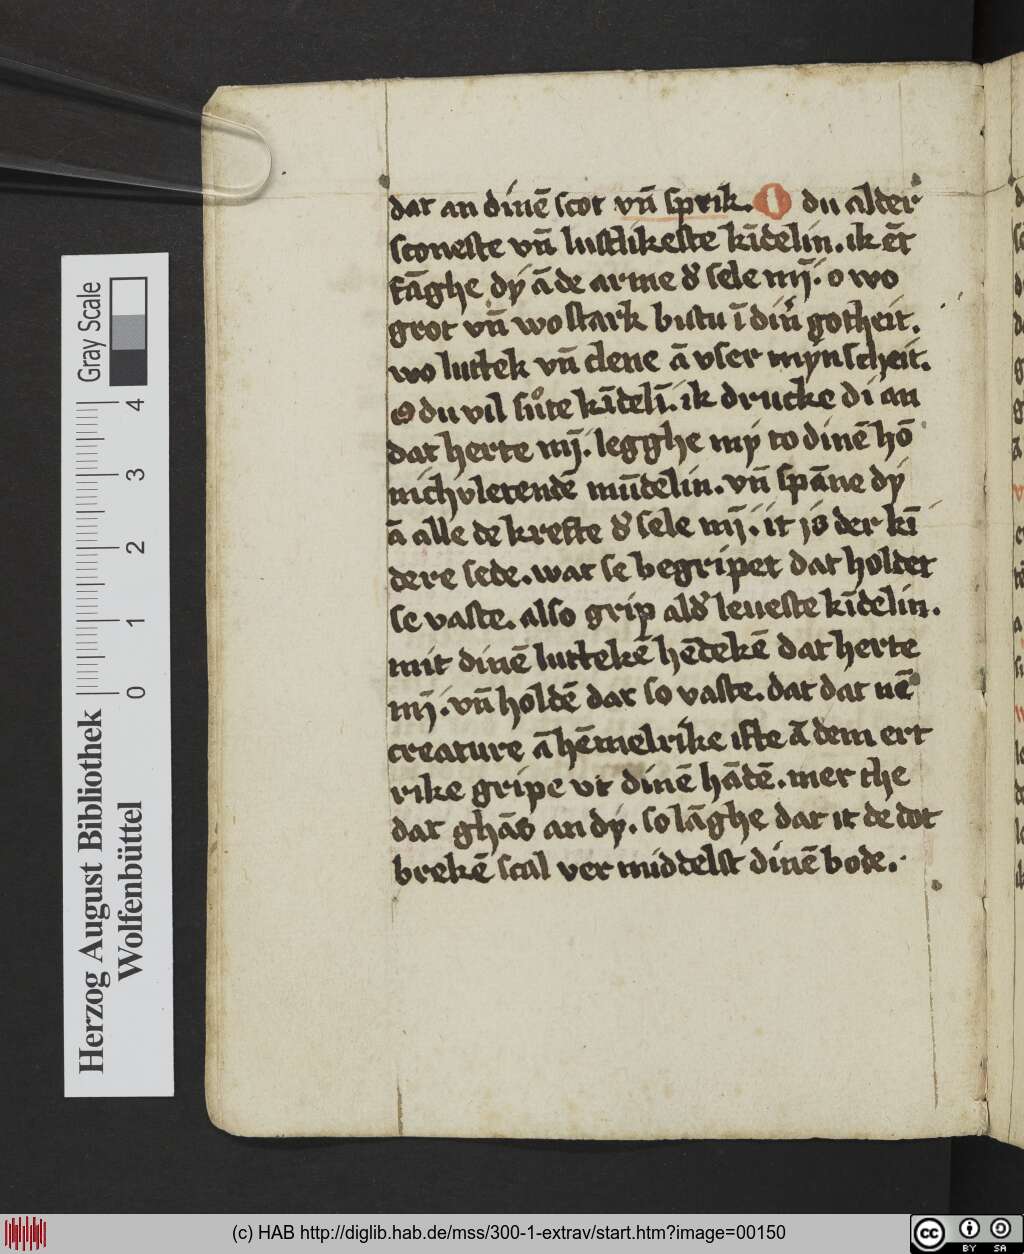 dat an dinē scot vn̄ sprik. O du alder
sconeste vn̄ lustlikeste kīdelin. ik ēt
fāghe dy ā de arme d' sele mӯ. o wo
grot vn̄ wo stark bustu ī din' gotheit.
wo luttek vn̄ clene ā vser mynscheit.
O du vil sůte kīdelī. ik drucke di an
dat herte mӯ. legghe my to dinē hō
nichvletendē mūdelin. vn̄ spāne dy
ā alle de krefte d' sele mӯ. it is der kī
dere sede. wat se begripet dat holdet
se vaste. also grip ald' leueste kīdelin.
mit dinē luttekē hēdekē dat herte
mӯ. vn̄ holdē dat so vaste. dat dat nē
creature ā hēmelrike ifte ā dem ert
rike gripe vt dinē hādē. mer the
dat ghās an dy. so lāghe dat it de dot
brekē scal vermiddelst dinē bode.
Gray Scale
0 1 2 3 4
Herzog August Bibliothek
Wolfenbüttel
(c) HAB http://diglib.hab.de/mss/300-1-extrav/start.htm?image=00150
cc BY SA